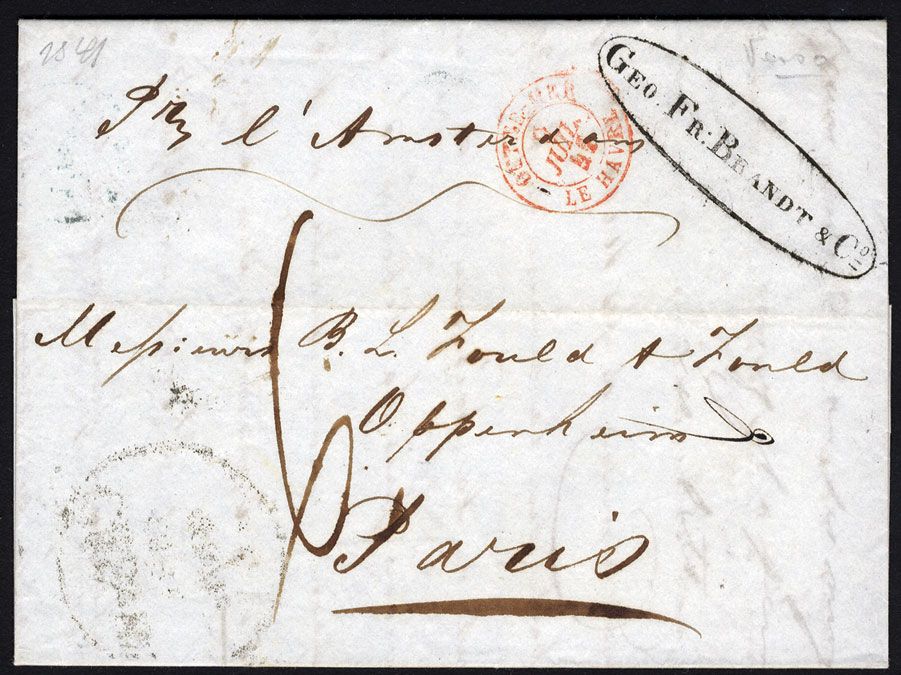 1841
Pr l'Amsterdam
OUTRE-MER
LE HAVRE
JUIL
GEO. FR: BRANDT & Co
Messieurs B. L. Fould & Fould
Oppenheim
6
Paris